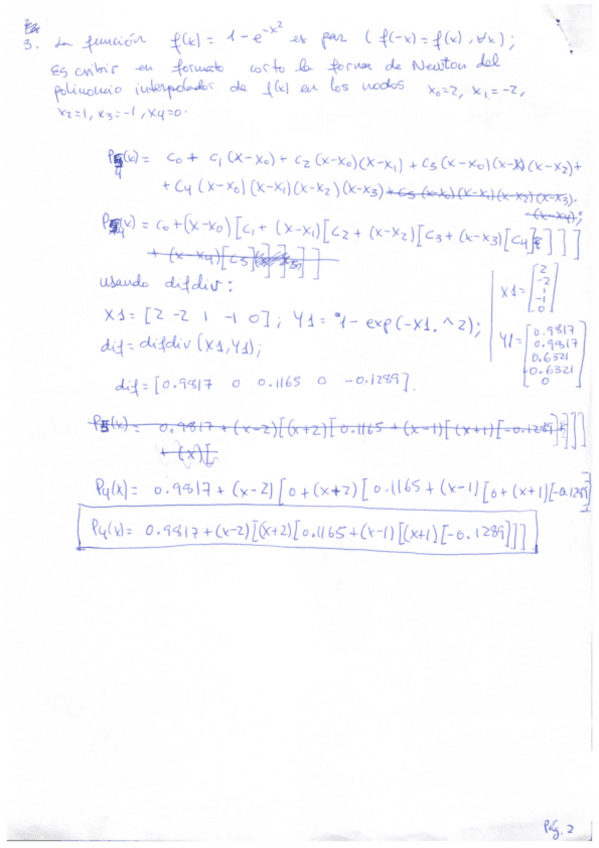 3. La función f(x) = 1-e^{-x^2} es par (f(-x) = f(x), ∀x);
Escribir en formato corto la forma de Newton del
polinomio interpolador de f(x) en los nodos x0=2, x1=-2,
x2=1, x3=-1, x4=0.
P4(x) = c0 + c1(x-x0) + c2(x-x0)(x-x1) + c3(x-x0)(x-x1)(x-x2)+
+ c4(x-x0)(x-x1)(x-x2)(x-x3) + c5(x-x0)(x-x1)(x-x2)(x-x3).
·(x-x4);
P4(x) = c0+(x-x0)[c1+(x-x1[c2+(x-x2)[c3+(x-x3)[c4]]]]
+ (x-x4)[c5]]]]]
usando difdiv:
x1=[2 -2 1 -1 0]; Y1= 1-exp(-x1.^2);
dif=difdiv(x1,Y1);
dif=[0.9817 0 0.1165 0 -0.1289].
x1=[2 -2 1 -1 0]
Y1=[0.9817 0.9817 0.6321 0.6321 0]
P5(x) = 0.9817+(x-2)[(x+2)[0.1165+(x-1)[(x+1)[-0.1289]+]]]
+(x)[
P4(x) = 0.9817+(x-2)[0+(x+2)[0.1165+(x-1)[0+(x+1)[-0.1289]
P4(x) = 0.9817+(x-2)[(x+2)[0.1165+(x-1)[(x+1)[-0.1289]]]
Pág. 2